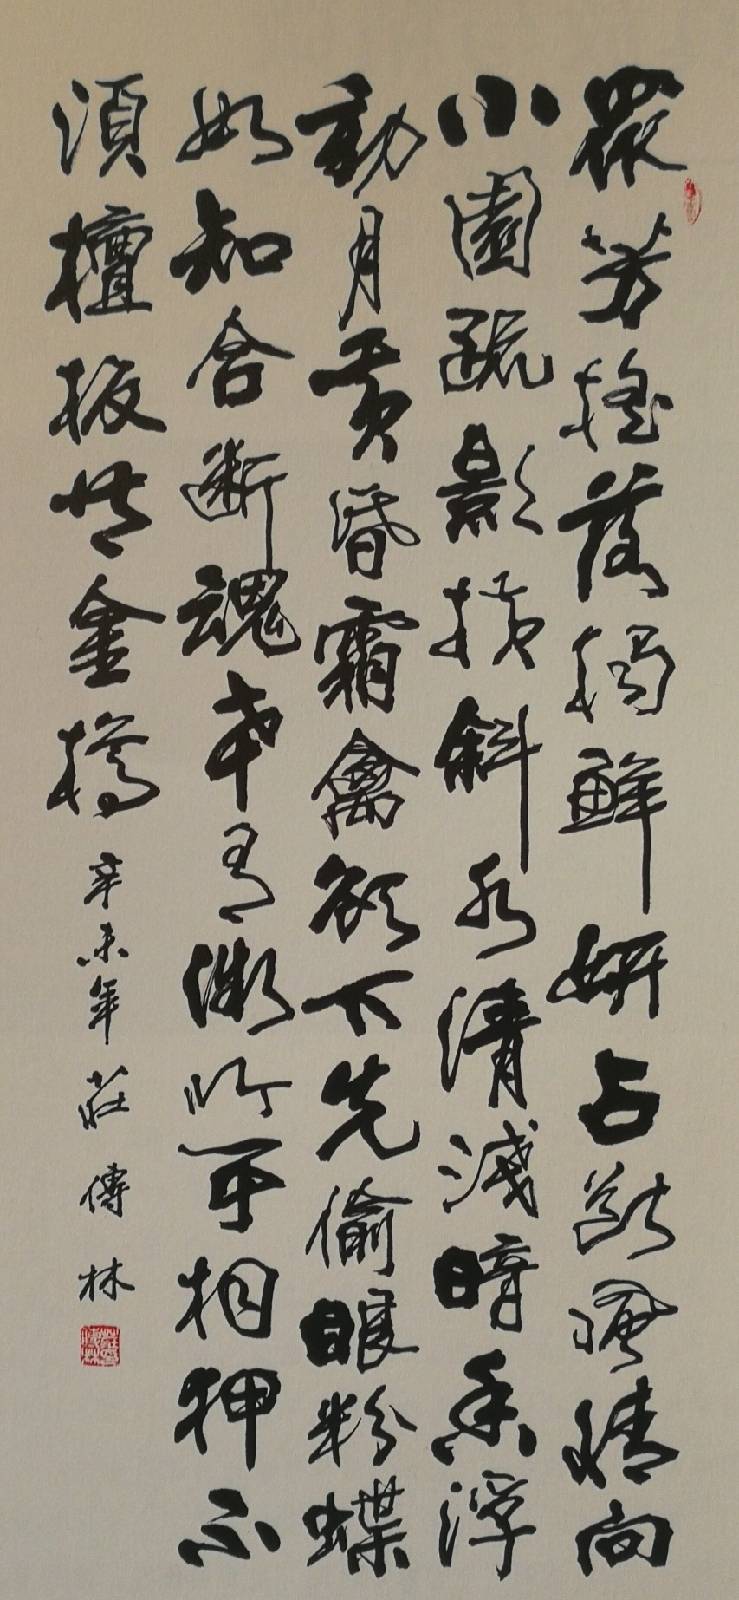 眾芳搖落獨鮮妍占斷風情向
小園疏影橫斜水清淺暗香浮
動月黃昏霜禽欲下先偷眼粉蝶
如知合斷魂幸有微吟可相狎不
須檀板共金樽
辛未年 莊傳林